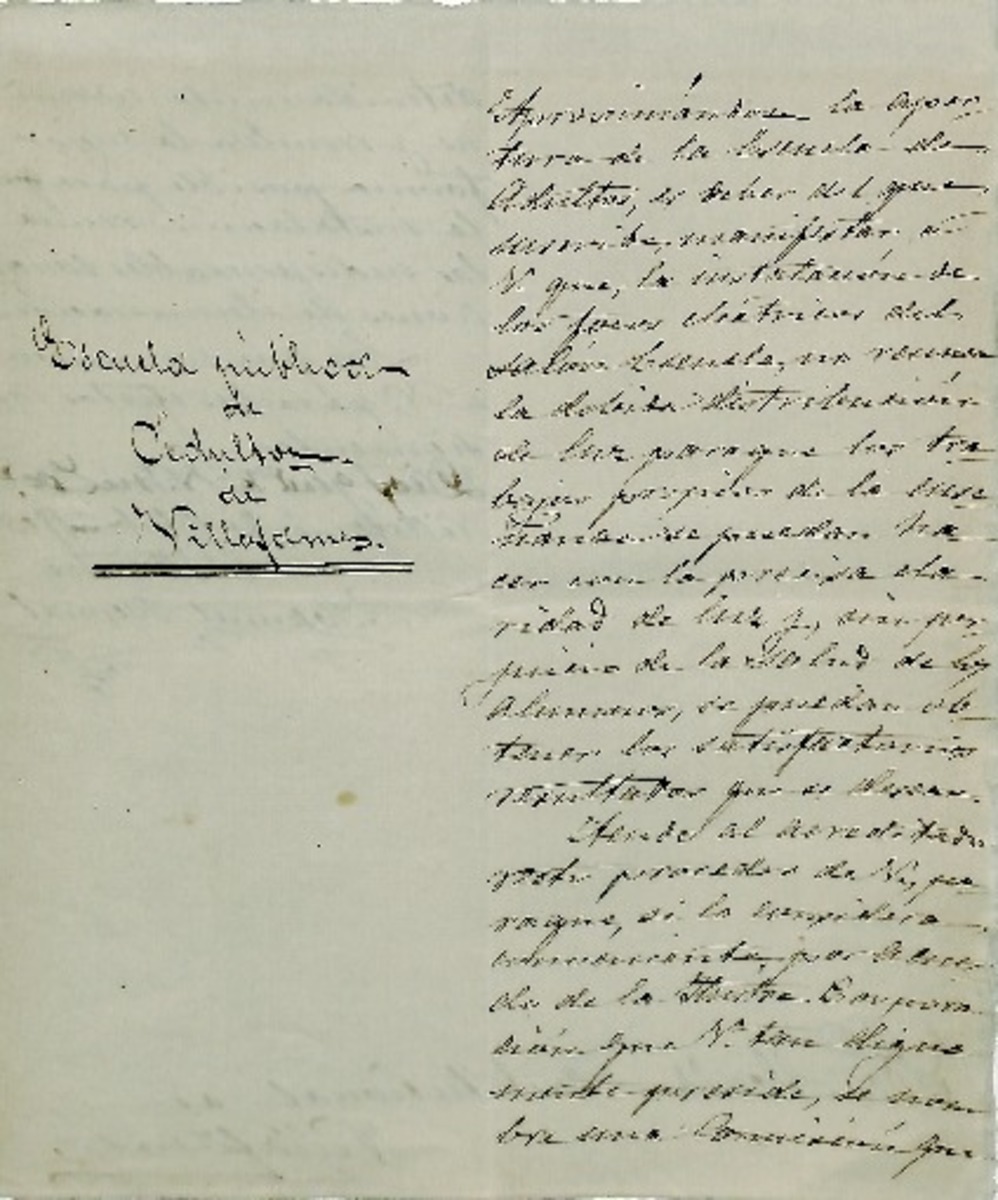 Escuela pública
de
Adultos
de
Villafamés.
Aproximándose la aper-
tura de la Escuela de
Adultos, es deber del que
suscribe, manifestar, á
V. que, la instalación de
los focos eléctricos del
salón Escuela, no reune
la debida distribución
de luz paraque los tra-
bajos propios de la
se puedan ha-
cer con la precisa cla-
ridad de luz y, sin per-
juicio de la salud de los
alumnos, se puedan ob-
tener los satisfactorios
resultados que se desean.
al acreditado
recto proceder de V., pa-
raque, si lo considera
conveniente, por acuer-
do de la Iltre. Corpora-
ción que V. tan digna-
mente preside, se nom-
bre una Comisión que